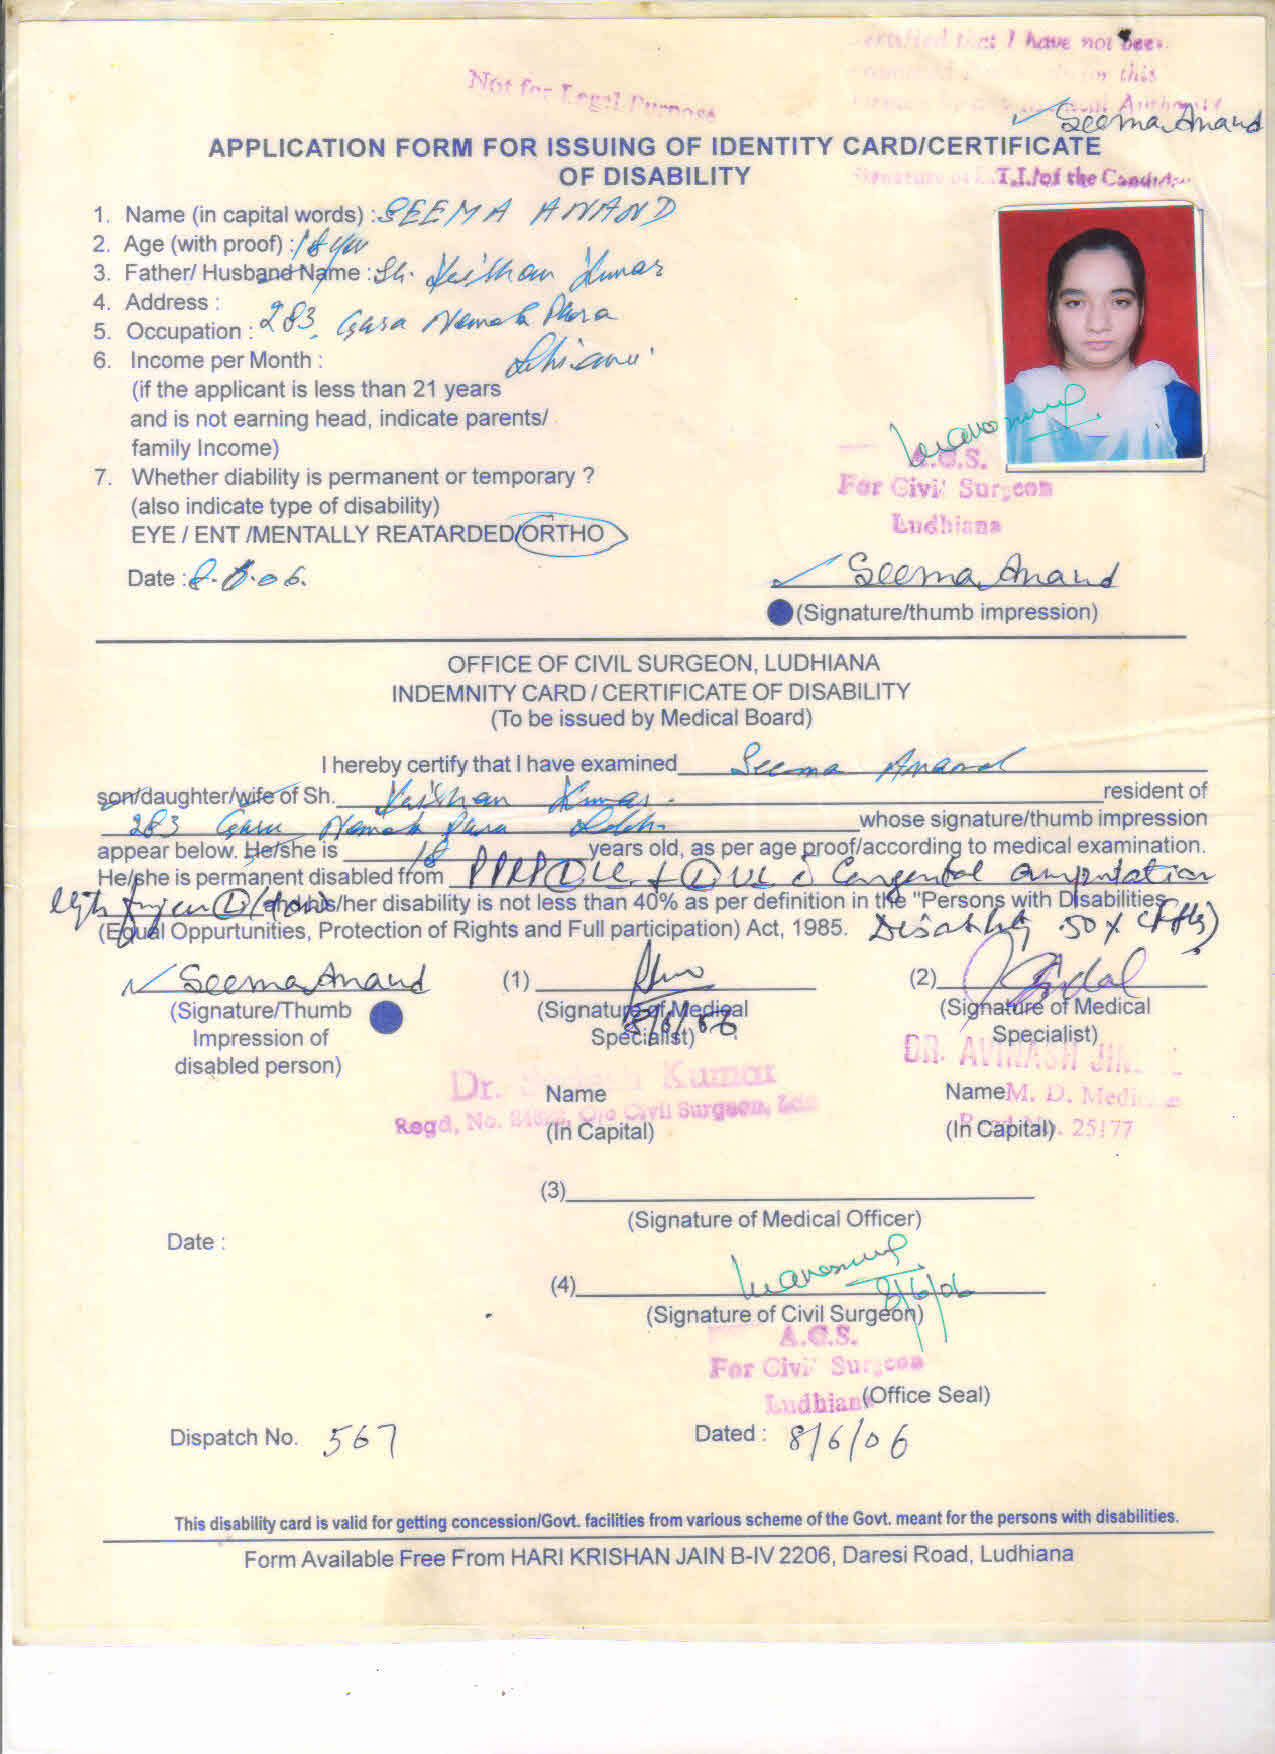 Not for Legal Purpose
I have not been
this
Seema Anand
APPLICATION FORM FOR ISSUING OF IDENTITY CARD/CERTIFICATE
OF DISABILITY
T.I./of the
1. Name (in capital words) : SEEMA ANAND
2. Age (with proof) : 18 yrs
3. Father/ Husband Name : Sh. Kumar
4. Address : 283,
5. Occupation :
6. Income per Month :
(if the applicant is less than 21 years
and is not earning head, indicate parents/
family Income)
7. Whether diability is permanent or temporary ?
(also indicate type of disability)
EYE / ENT /MENTALLY REATARDED/ORTHO
A.C.S.
For Civil Surgeon
Ludhiana
Date : 8.6.06.
Seema Anand
(Signature/thumb impression)
OFFICE OF CIVIL SURGEON, LUDHIANA
INDEMNITY CARD / CERTIFICATE OF DISABILITY
(To be issued by Medical Board)
I hereby certify that I have examined Seema Anand
son/daughter/wife of Sh. Kumar resident of
283 whose signature/thumb impression
appear below. He/she is 18 years old, as per age proof/according to medical examination.
He/she is permanent disabled from PPRP amputation
his/her disability is not less than 40% as per definition in the "Persons with Disabilities
(Equal Oppurtunities, Protection of Rights and Full participation) Act, 1985. Disability 50%
Seema Anand (1) (2)
(Signature/Thumb (Signature of Medical (Signature of Medical
Impression of Specialist) Specialist)
8/6/06
disabled person)
DR. AVINASH
Dr. Kumar
Name Name M. D.
Regd, No. O/o Civil Surgeon,
(In Capital) (In Capital) 25177
(3)
(Signature of Medical Officer)
Date :
(4) 8/6/06
(Signature of Civil Surgeon)
A.C.S.
For Civil Surgeon
Ludhiana (Office Seal)
Dispatch No. 567 Dated : 8/6/06
This disability card is valid for getting concession/Govt. facilities from various scheme of the Govt. meant for the persons with disabilities.
Form Available Free From HARI KRISHAN JAIN B-IV 2206, Daresi Road, Ludhiana